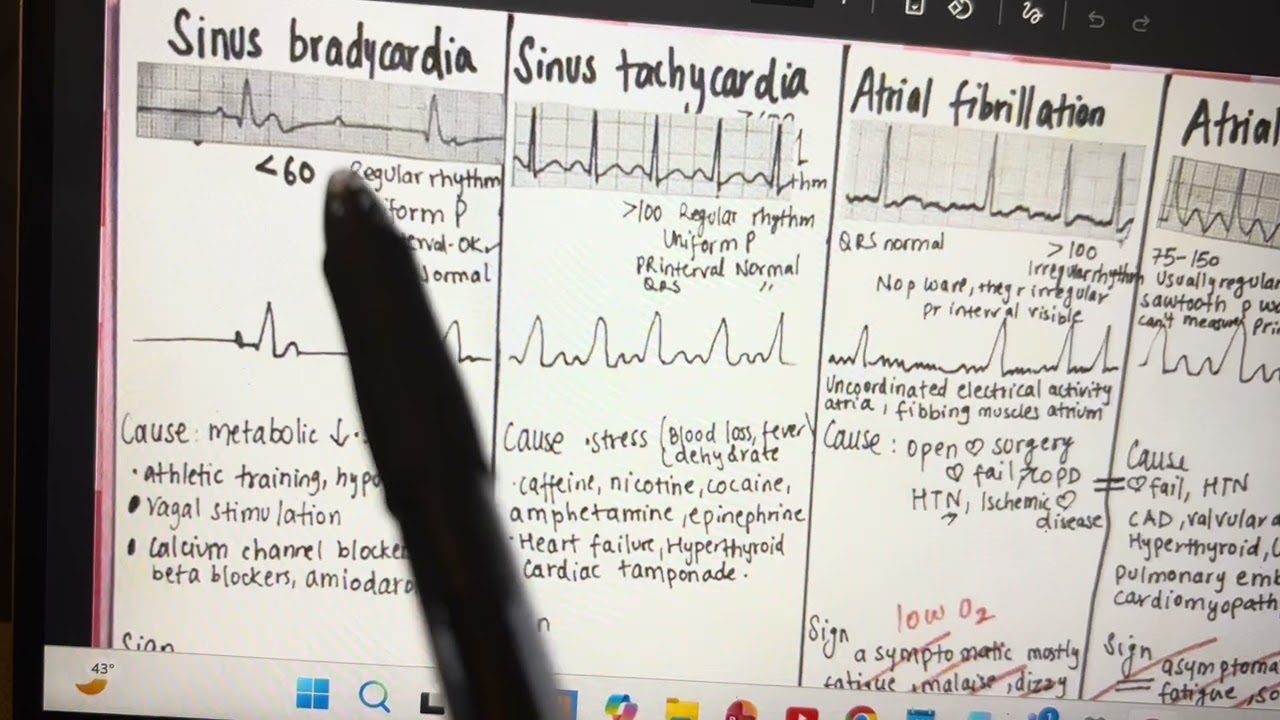 Sinus bradycardia
<60 Regular rhythm
P
OK
Normal
Cause: metabolic ↓
· athletic training,
• Vagal stimulation
• Calcium channel
beta blockers,
Sign
Sinus tachycardia
>100 Regular rhythm
Uniform P
PR interval Normal
QRS "
Cause · stress (Blood loss, fever
dehydrate
· caffeine, nicotine, cocaine,
amphetamine, epinephrine
· Heart failure, Hyperthyroid
cardiac tamponade.
Atrial fibrillation
QRS normal
>100
Irregular rhythm
No p wave, they r irregular
pr interval visible
Uncoordinated electrical activity
atria, fibbing muscles atrium
Cause: open ♡ surgery
♡ fail, COPD
HTN, Ischemic ♡
disease
low O2
Sign
asymptomatic mostly
fatigue, malaise, dizzy
Atrial
75-150
Usually regular
sawtooth p
can't measure
Cause
♡ fail, HTN
CAD, valvular
Hyperthyroid,
pulmonary
Sign
fatigue,
43°